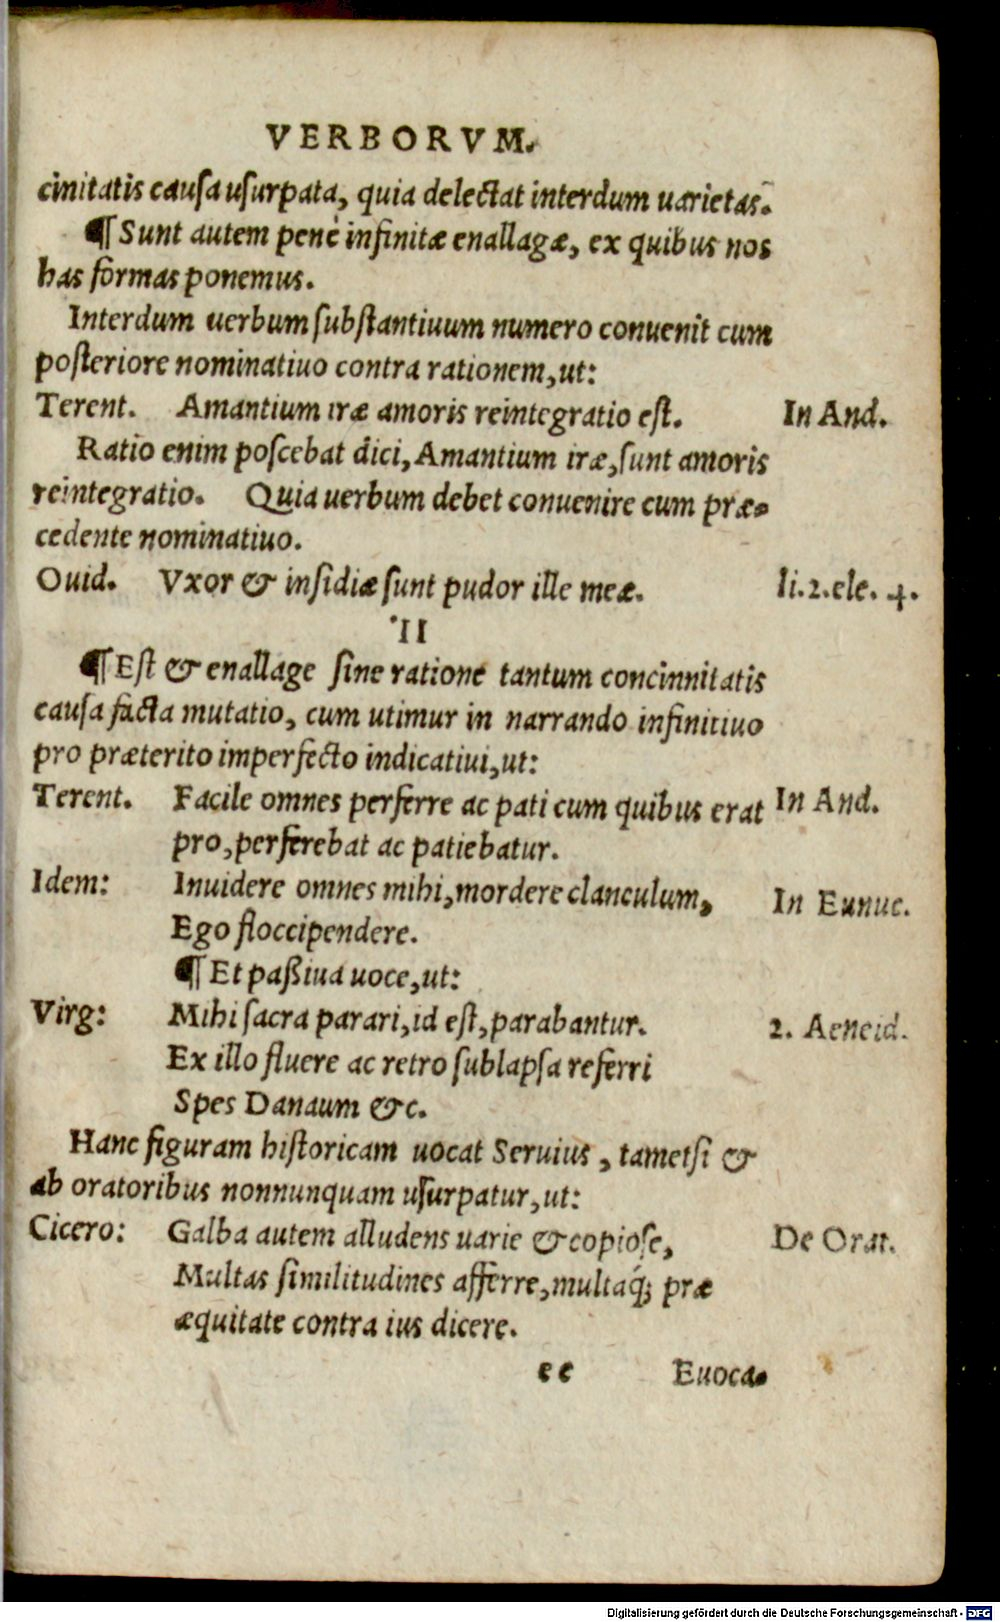 VERBORVM.
cinitatis causa usurpata, quia delectat interdum uarietas.
¶ Sunt autem penè infinitæ enallagæ, ex quibus nos
has formas ponemus.
Interdum uerbum substantiuum numero conuenit cum
posteriore nominatiuo contra rationem, ut:
Terent. Amantium iræ amoris reintegratio est. In And.
Ratio enim poscebat dici, Amantium iræ, sunt amoris
reintegratio. Quia uerbum debet conuenire cum præ-
cedente nominatiuo.
Ouid. Vxor & insidiæ sunt pudor ille meæ. li.2.ele. 4.
II
¶ Est & enallage sine ratione tantum concinnitatis
causa facta mutatio, cum utimur in narrando infinitiuo
pro præterito imperfecto indicatiui, ut:
Terent. Facile omnes perferre ac pati cum quibus erat In And.
pro, perferebat ac patiebatur.
Idem: Inuidere omnes mihi, mordere clanculum, In Eunuc.
Ego floccipendere.
¶ Et paßiua uoce, ut:
Virg: Mihi sacra parari, id est, parabantur. 2. Aeneid.
Ex illo fluere ac retro sublapsa referri
Spes Danaum &c.
Hanc figuram historicam uocat Seruius, tametsi &
ab oratoribus nonnunquam usurpatur, ut:
Cicero: Galba autem alludens uarie & copiose, De Orat.
Multas similitudines afferre, multaq́; præ
æquitate contra ius dicere.
ee Euoca-
Digitalisierung gefördert durch die Deutsche Forschungsgemeinschaft - DFG